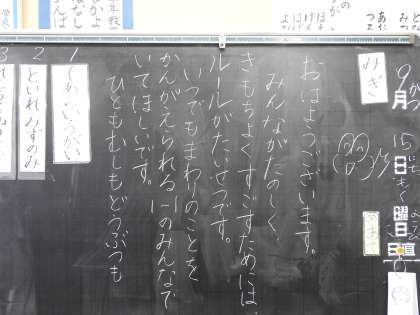 9月15日もく曜日
日直
みぎ
おはようございます。
みんながたのしく、
きもちよくすごすためには、
ルールがたいせつです。
いつでもまわりのことを
かんがえられる1-1のみんなで
いてほしいです。
ひともむしもどうぶつも
1 てあらいうがい
2 といれ みずのみ
3